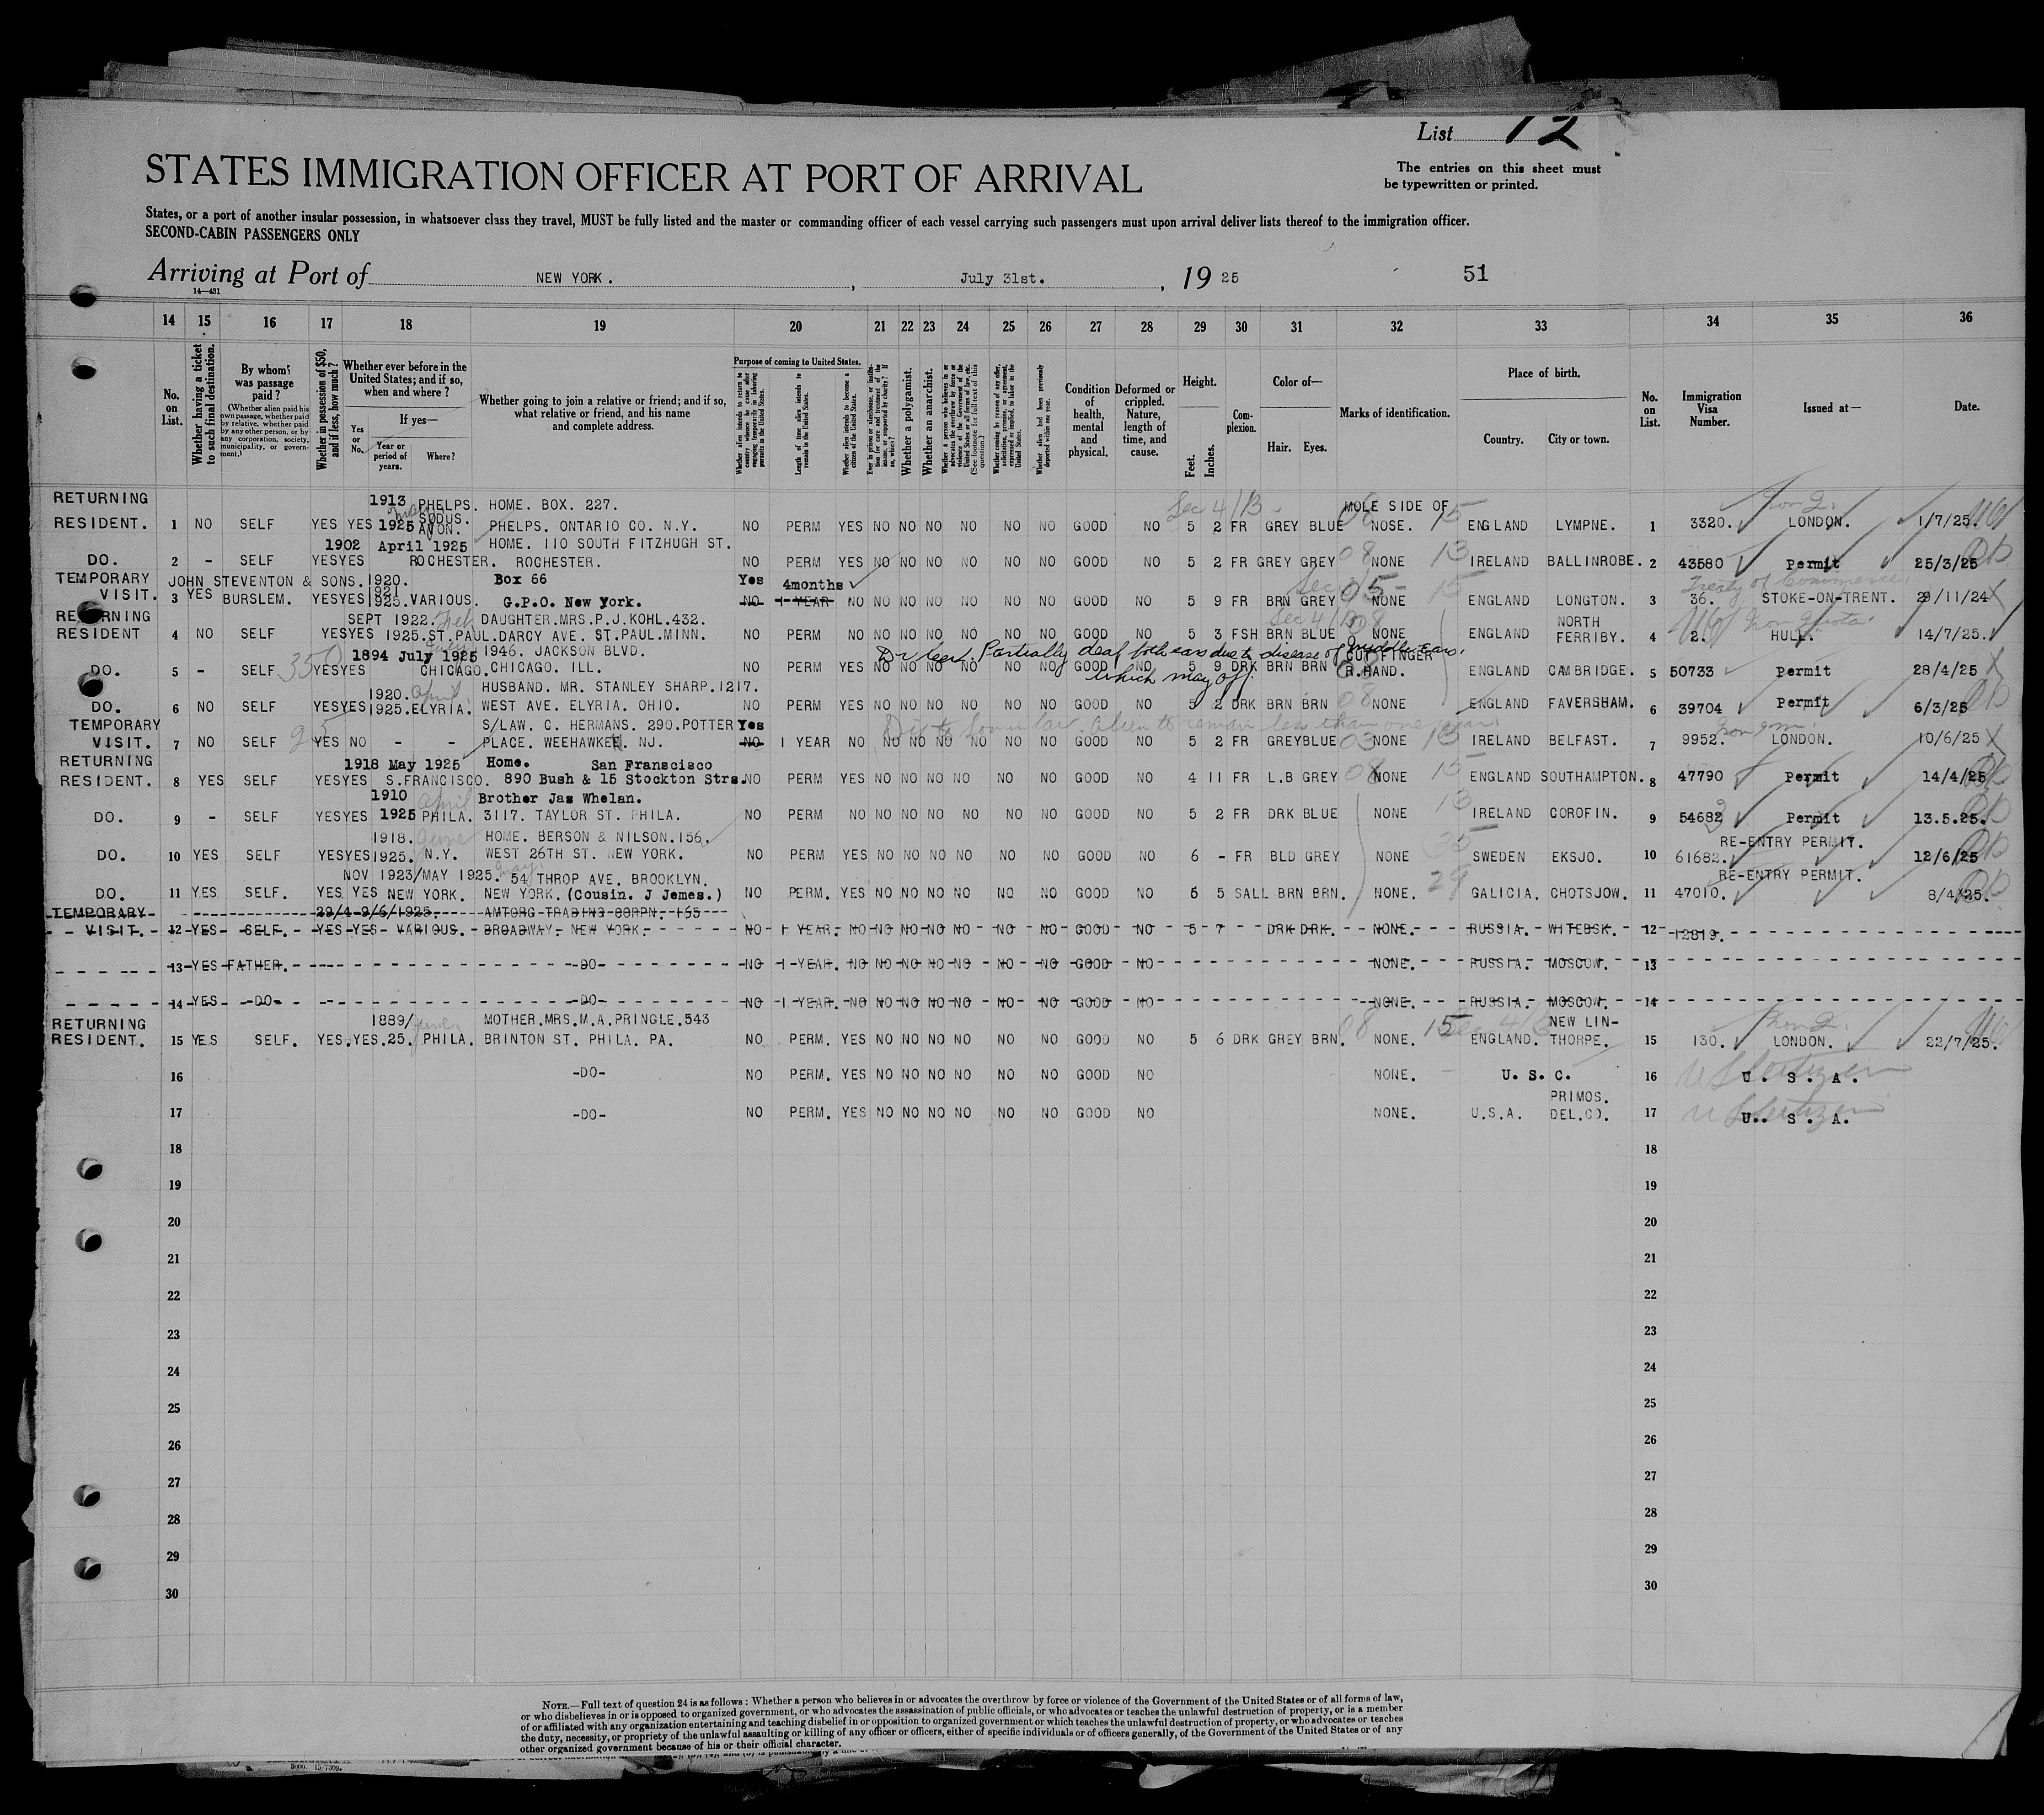 List 12
STATES IMMIGRATION OFFICER AT PORT OF ARRIVAL
The entries on this sheet must
be typewritten or printed.
States, or a port of another insular possession, in whatsoever class they travel, MUST be fully listed and the master or commanding officer of each vessel carrying such passengers must upon arrival deliver lists thereof to the immigration officer.
SECOND-CABIN PASSENGERS ONLY
Arriving at Port of NEW YORK. , July 31st. , 19 25 51
14—431
14 15 16 17 18 19 20 21 22 23 24 25 26 27 28 29 30 31 32 33 34 35 36
No. on List.
Whether having a ticket to such final destination.
By whom was passage paid?
(Whether alien paid his own passage, whether paid by relative, whether paid by any other person, or by any corporation, society, municipality, or government.)
Whether in possession of $50, and if less, how much?
Whether ever before in the United States; and if so, when and where?
Yes or No.
If yes—
Year or period of years.
Where?
Whether going to join a relative or friend; and if so, what relative or friend, and his name and complete address.
Purpose of coming to United States.
Whether alien intends to return to country whence he came after engaging temporarily in laboring pursuits in the United States.
Length of time alien intends to remain in the United States.
Whether alien intends to become a citizen of the United States.
Whether a polygamist.
Whether an anarchist.
Condition of health, mental and physical.
Deformed or crippled. Nature, length of time, and cause.
Height.
Feet. Inches.
Complexion.
Color of—
Hair. Eyes.
Marks of identification.
Place of birth.
Country. City or town.
No. on List.
Immigration Visa Number.
Issued at—
Date.
RETURNING 1913 PHELPS. HOME. BOX. 227. Sec 4/13 MOLE SIDE OF Non Q.
RESIDENT. 1 NO SELF YES YES 1925 SODUS. AVON. PHELPS. ONTARIO CO. N.Y. NO PERM YES NO NO NO NO NO NO GOOD NO 5 2 FR GREY BLUE NOSE. 15 ENGLAND LYMPNE. 1 3320. LONDON. 1/7/25.
1902 April 1925 HOME. 110 SOUTH FITZHUGH ST.
DO. 2 - SELF YESYES ROCHESTER. ROCHESTER. NO PERM YES NO NO NO NO NO NO GOOD NO 5 2 FR GREY GREY 08 NONE 13 IRELAND BALLINROBE. 2 43580 Permit 25/3/25
TEMPORARY JOHN STEVENTON & SONS. 1920. 1921 Box 66 Yes 4months Treaty of Commerce
VISIT. 3 YES BURSLEM. YESYES 1925. VARIOUS. G.P.O. New York. NO 1 YEAR NO NO NO NO NO NO NO GOOD NO 5 9 FR BRN GREY 05 NONE 15 ENGLAND LONGTON. 3 36. STOKE-ON-TRENT. 29/11/24
RETURNING SEPT 1922. Feb DAUGHTER.MRS.P.J.KOHL.432. Sec 4/13 08 NORTH Non Quota
RESIDENT 4 NO SELF YESYES 1925.ST.PAUL. DARCY AVE. ST.PAUL.MINN. NO PERM NO NO NO NO NO NO NO GOOD NO 5 3 FSH BRN BLUE NONE ENGLAND FERRIBY. 4 2. HULL. 14/7/25.
1894 July 1925 1946. JACKSON BLVD. Dr Cert. Partially deaf both ears due to disease of middle ears. CUT FINGER
DO. 5 - SELF 35 YESYES CHICAGO. CHICAGO. ILL. NO PERM YES NO NO NO NO NO NO GOOD NO 5 9 DRK BRN BRN R.HAND. ENGLAND CAMBRIDGE. 5 50733 Permit 28/4/25
which may aff.
1920. April HUSBAND. MR. STANLEY SHARP.1217.
DO. 6 NO SELF YESYES 1925. ELYRIA. WEST AVE. ELYRIA. OHIO. NO PERM YES NO NO NO NO NO NO GOOD NO 5 2 DRK BRN BRN 08 NONE ENGLAND FAVERSHAM. 6 39704 Permit 6/3/25
TEMPORARY S/LAW. C. HERMANS. 290.POTTER Yes Alien to remain less than one year.
VISIT. 7 NO SELF YES NO - - PLACE. WEEHAWKEN. NJ. NO 1 YEAR NO NO NO NO NO NO NO GOOD NO 5 2 FR GREY BLUE 03 NONE 13 IRELAND BELFAST. 7 9952. LONDON. 10/6/25
RETURNING 1918 May 1925 Home. San Franscisco
RESIDENT. 8 YES SELF YESYES S.FRANCISCO. 890 Bush & 15 Stockton Strs. NO PERM YES NO NO NO NO NO NO GOOD NO 4 11 FR L.B GREY 08 NONE 15 ENGLAND SOUTHAMPTON. 8 47790 Permit 14/4/25
1910 April Brother Jas Whelan.
DO. 9 - SELF YESYES 1925 PHILA. 3117. TAYLOR ST. PHILA. NO PERM NO NO NO NO NO NO NO GOOD NO 5 2 FR DRK BLUE NONE 13 IRELAND COROFIN. 9 54682 Permit 13.5.25.
1918. June HOME. BERSON & NILSON.156. RE-ENTRY PERMIT.
DO. 10 YES SELF YESYES 1925. N.Y. WEST 26TH ST. NEW YORK. NO PERM YES NO NO NO NO NO NO GOOD NO 6 - FR BLD GREY NONE 35 SWEDEN EKSJO. 10 61682. 12/6/25
NOV 1923/MAY 1925. 54 THROP AVE. BROOKLYN. RE-ENTRY PERMIT.
DO. 11 YES SELF. YES YES NEW YORK. NEW YORK. (Cousin. J Jemes.) NO PERM. YES NO NO NO NO NO NO GOOD NO 6 5 SALL BRN BRN. NONE. 29 GALICIA. CHOTSJOW. 11 47010. 8/4/25.
TEMPORARY 29/4-9/6/1925. AMTORG TRADING CORPN. 165
VISIT. 12 YES SELF. YES YES VARIOUS. BROADWAY. NEW YORK. NO 1 YEAR. NO NO NO NO NO NO NO GOOD NO 5 7 DRK DRK. NONE. RUSSIA. WITEBSK. 12 12819.
13 YES FATHER. -DO- NO 1 YEAR. NO NO NO NO NO NO NO GOOD NO NONE. RUSSIA. MOSCOW. 13
14 YES -DO- -DO- NO 1 YEAR. NO NO NO NO NO NO NO GOOD NO NONE. RUSSIA. MOSCOW. 14
RETURNING 1889/ June MOTHER.MRS.M.A.PRINGLE.543 NEW LIN- Non Q.
RESIDENT. 15 YES SELF. YES.YES. 25. PHILA. BRINTON ST. PHILA. PA. NO PERM. YES NO NO NO NO NO NO GOOD NO 5 6 DRK GREY BRN. 08 NONE. 15 ENGLAND. THORPE. 15 130. LONDON. 22/7/25.
16 -DO- NO PERM. YES NO NO NO NO NO NO GOOD NO NONE. U. S. C. 16 US Citizen U. S. A.
PRIMOS.
17 -DO- NO PERM. YES NO NO NO NO NO NO GOOD NO NONE. U.S.A. DEL.CO. 17 US Citizen U. S. A.
18 18
19 19
20 20
21 21
22 22
23 23
24 24
25 25
26 26
27 27
28 28
29 29
30 30
NOTE.—Full text of question 24 is as follows: Whether a person who believes in or advocates the overthrow by force or violence of the Government of the United States or of all forms of law,
or who disbelieves in or is opposed to organized government, or who advocates the assassination of public officials, or who advocates or teaches the unlawful destruction of property, or is a member
of or affiliated with any organization entertaining and teaching disbelief in or opposition to organized government or which teaches the unlawful destruction of property, or who advocates or teaches
the duty, necessity, or propriety of the unlawful assaulting or killing of any officer or officers, either of specific individuals or of officers generally, of the Government of the United States or of any
other organized government because of his or their official character.